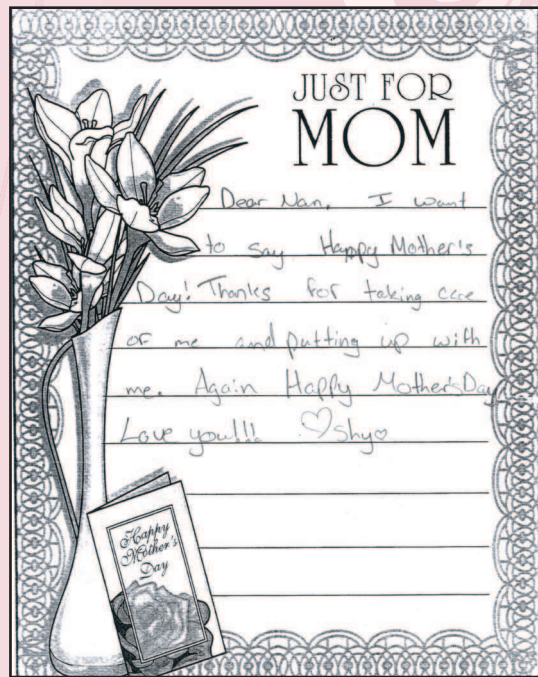 JUST FOR
MOM
Dear Nan, I want
to say Happy Mother's
Day! Thanks for taking care
of me and putting up with
me. Again Happy Mother's Day
Love you!!! ♡ Shy♡
Happy
Mother's
Day